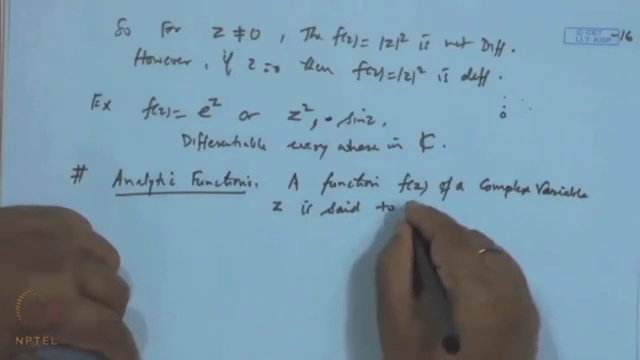 So For z ≠ 0, The f(z) = |z|² is not Diff.
However, if z = 0 then f(z) = |z|² is diff.
Ex f(z) = e^z or z², sinz,
Differentiable every where in ₵.
# Analytic Functions. A function f(z) of a Complex Variable
z is said to
© CET
I.I.T. KGP
-16
NPTEL